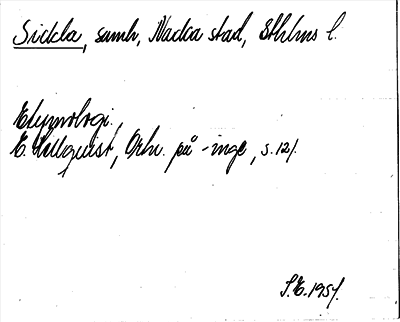 Sickla, samh, Nacka stad, Sthlms l.
Etymologi.,
E. Hellquist, Ortn. på -inge, s. 121.
S.E. 1951.